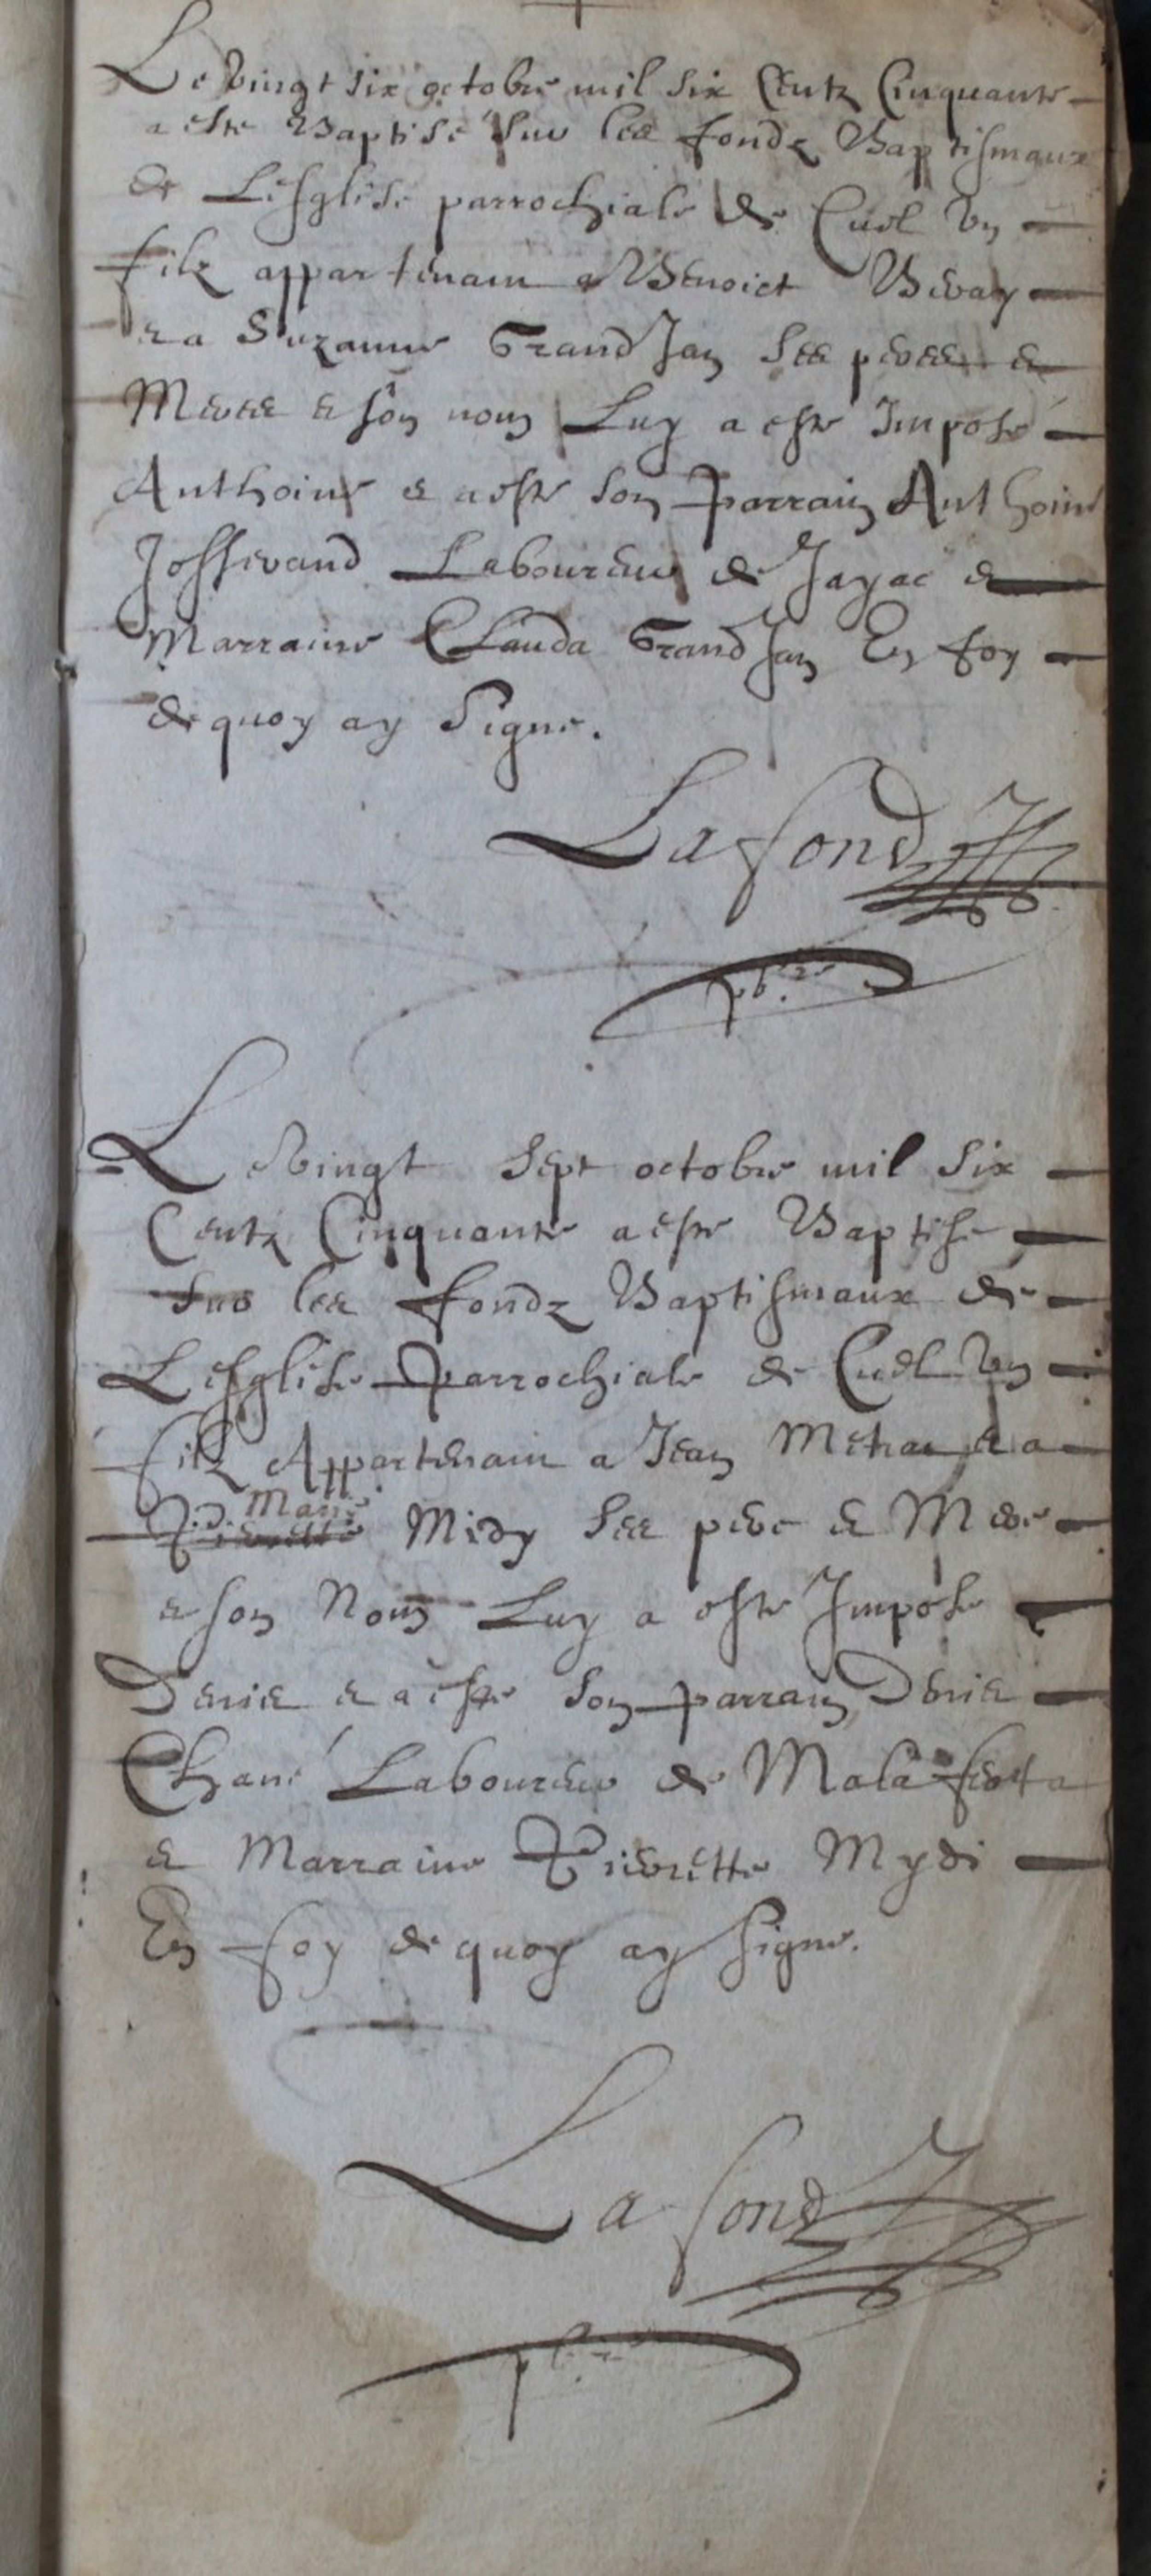 Le vingt six octobre mil six Centz Cinquante
a este Baptise sur les fondz Baptismaux
de Lesglise parrochiale de Cuel Un
filz appartenam a Benoict Beray
& a Suzanne Grand Jan ses peres &
Meres & son nom Luy a este Imposé
Anthoine & a este son parrain Anthoine
Josserand Laboureur de Jayac &
Marraine Clauda Grand Jan En foy
de quoy ay Signe.
Lafond
pbre
Le vingt sept octobre mil six
Centz Cinquante a este Baptise
sur les fondz Baptismaux de
Lesglise Parrochiale de Cuel Un
filz Appartenam a Jean & a
Marie
Pierrette Midy ses pere & Mere
& son Nom Luy a este Impose
Denis & a este son parrain Denis
Chané Laboureur de Malaferta
& Marraine Pierrette Mydi
En foy de quoy ay signe.
Lafond
pbre